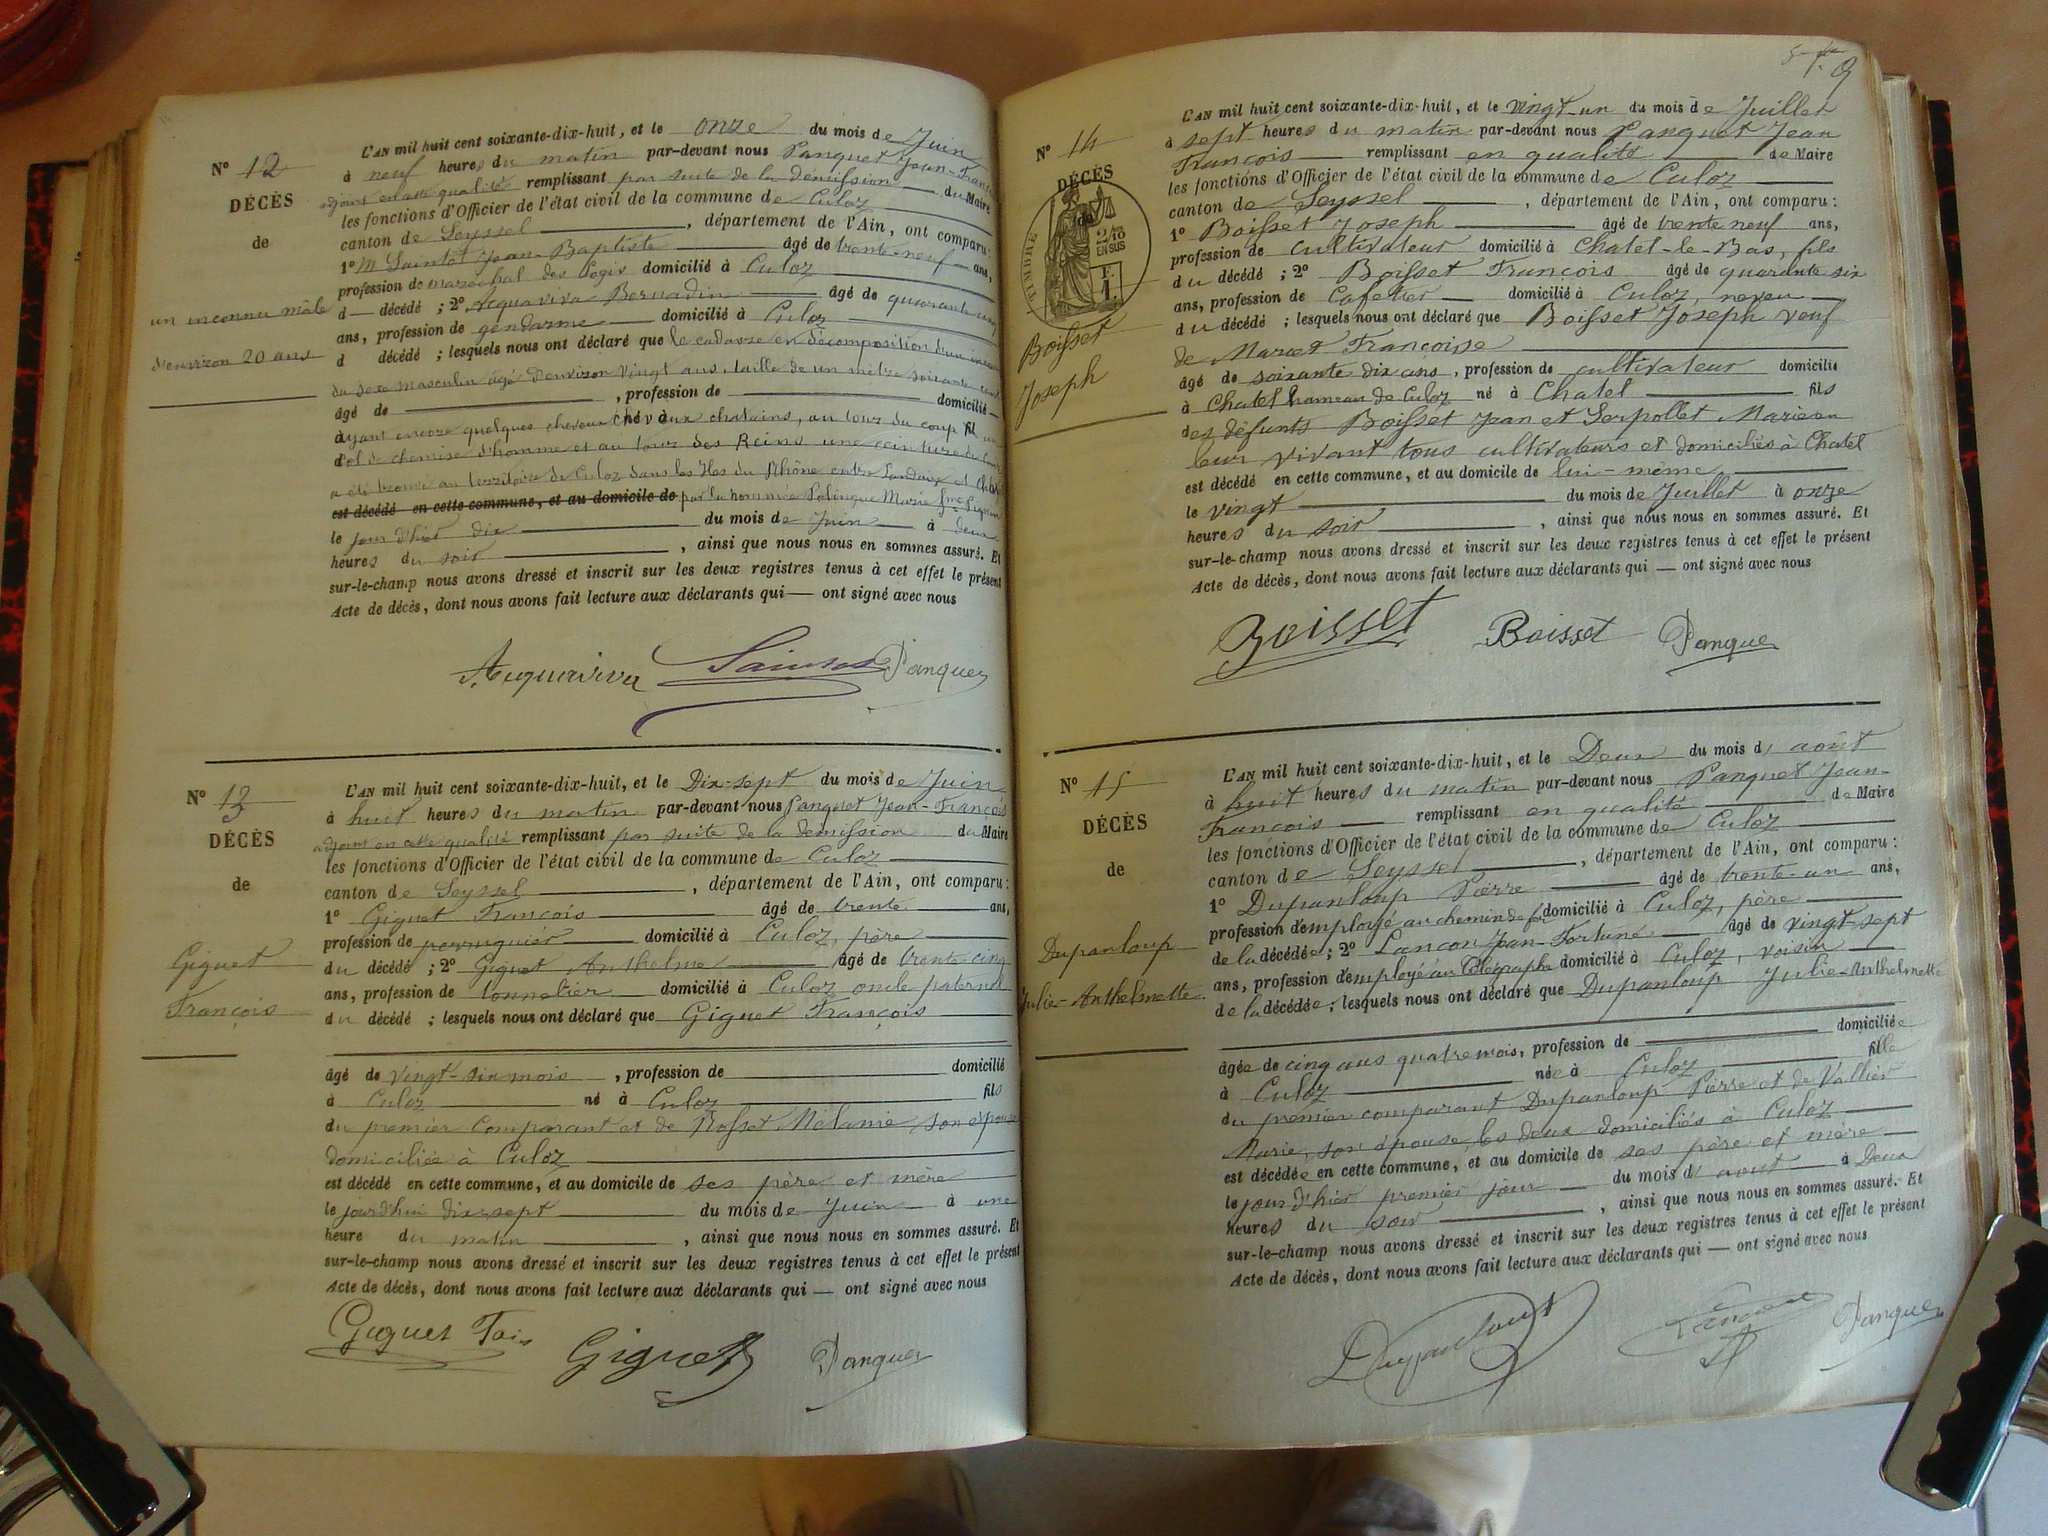 N° 12
DÉCÈS
de
un inconnu mâle
d'environ 20 ans
L'AN mil huit cent soixante-dix-huit, et le onze du mois de Juin
à neuf heures du matin par-devant nous Panquet Jean-Franc
adjoint en cette qualité remplissant par suite de la démission du Maire
les fonctions d'Officier de l'état civil de la commune de Culoz
canton de Seyssel, département de l'Ain, ont comparu:
1° M Saintot Jean-Baptiste âgé de trente-neuf ans,
profession de maréchal des logis domicilié à Culoz
d décédé; 2° Acquaviva Bernadin âgé de quarante cinq
ans, profession de gendarme domicilié à Culoz
d décédé; lesquels nous ont déclaré que le cadavre en décomposition d'un inconnu
du sexe masculin âgé d'environ vingt ans, taille de un mètre soixante
âgé de , profession de domicilié
ayant encore quelques cheveux chatains, au tour du coup un
col de chemise d'homme et au tour des Reins une ceinture de
a été trouvé au territoire de Culoz dans les Iles du Rhône entre Landaix et
est décédé en cette commune, et au domicile de par la nommée Polingue Marie fme
le jour d'hier dix du mois de Juin à deux
heures du soir, ainsi que nous nous en sommes assuré. Et
sur-le-champ nous avons dressé et inscrit sur les deux registres tenus à cet effet le présent
Acte de décès, dont nous avons fait lecture aux déclarants qui — ont signé avec nous
Acquaviva Saintot Panquet
N° 13
DÉCÈS
de
Giguet
François
L'AN mil huit cent soixante-dix-huit, et le Dix-sept du mois de Juin
à huit heures du matin par-devant nous Panquet Jean-François
adjoint en cette qualité remplissant par suite de la démission du Maire
les fonctions d'Officier de l'état civil de la commune de Culoz
canton de Seyssel, département de l'Ain, ont comparu:
1° Giguet François âgé de trente ans,
profession de perruquier domicilié à Culoz, père
du décédé; 2° Giguet Anthelme âgé de trente cinq
ans, profession de tonnelier domicilié à Culoz oncle paternel
du décédé; lesquels nous ont déclaré que Giguet François
âgé de vingt-six mois, profession de domicilié
à Culoz né à Culoz fils
du premier comparant et de Rosset Mélanie, son épouse
domiciliée à Culoz
est décédé en cette commune, et au domicile de ses père et mère
le jourd'hui dix-sept du mois de Juin à une
heure du matin, ainsi que nous nous en sommes assuré. Et
sur-le-champ nous avons dressé et inscrit sur les deux registres tenus à cet effet le présent
Acte de décès, dont nous avons fait lecture aux déclarants qui — ont signé avec nous
Giguet Fois Giguet Panquet
9
N° 14
DÉCÈS
de
TIMBRE
2/10
EN SUS
Boisset
Joseph
L'AN mil huit cent soixante-dix-huit, et le vingt-un du mois de Juillet
à sept heures du matin par-devant nous Panquet Jean
François remplissant en qualité de Maire
les fonctions d'Officier de l'état civil de la commune de Culoz
canton de Seyssel, département de l'Ain, ont comparu:
1° Boisset Joseph âgé de trente neuf ans,
profession de cultivateur domicilié à Chatel-le-Bas, fils
du décédé; 2° Boisset François âgé de quarante six
ans, profession de Cafetier domicilié à Culoz, neveu
du décédé; lesquels nous ont déclaré que Boisset Joseph veuf
de Marcet Françoise
âgé de soixante dix ans, profession de cultivateur domicilié
à Chatel hameau de Culoz né à Chatel fils
des défunts Boisset Jean et Serpollet Marie en
leur vivant tous cultivateurs et domiciliés à Chatel
est décédé en cette commune, et au domicile de lui-même,
le vingt du mois de Juillet à onze
heures du soir, ainsi que nous nous en sommes assuré. Et
sur-le-champ nous avons dressé et inscrit sur les deux registres tenus à cet effet le présent
Acte de décès, dont nous avons fait lecture aux déclarants qui — ont signé avec nous
Boisset Boisset Panquet
N° 15
DÉCÈS
de
Dupanloup
Julie-Anthelmette
L'AN mil huit cent soixante-dix-huit, et le Deux du mois d'août
à huit heures du matin par-devant nous Panquet Jean-
François remplissant en qualité de Maire
les fonctions d'Officier de l'état civil de la commune de Culoz
canton de Seyssel, département de l'Ain, ont comparu:
1° Dupanloup Pierre âgé de trente-un ans,
profession d'employé au chemin de fer domicilié à Culoz, père
de la décédée; 2° Lançon Jean-Fortuné âgé de vingt-sept
ans, profession d'employé au Télégraphe domicilié à Culoz, voisin
de la décédée; lesquels nous ont déclaré que Dupanloup Julie-Anthelmette
âgée de cinq ans quatre mois, profession de domiciliée
à Culoz née à Culoz fille
du premier comparant Dupanloup Pierre et de Vallier
Marie, son épouse, les deux domiciliés à Culoz
est décédée en cette commune, et au domicile de ses père et mère
le jour d'hier premier jour du mois d'août à Deux
heures du soir, ainsi que nous nous en sommes assuré. Et
sur-le-champ nous avons dressé et inscrit sur les deux registres tenus à cet effet le présent
Acte de décès, dont nous avons fait lecture aux déclarants qui — ont signé avec nous
Dupanloup Lançon Panquet